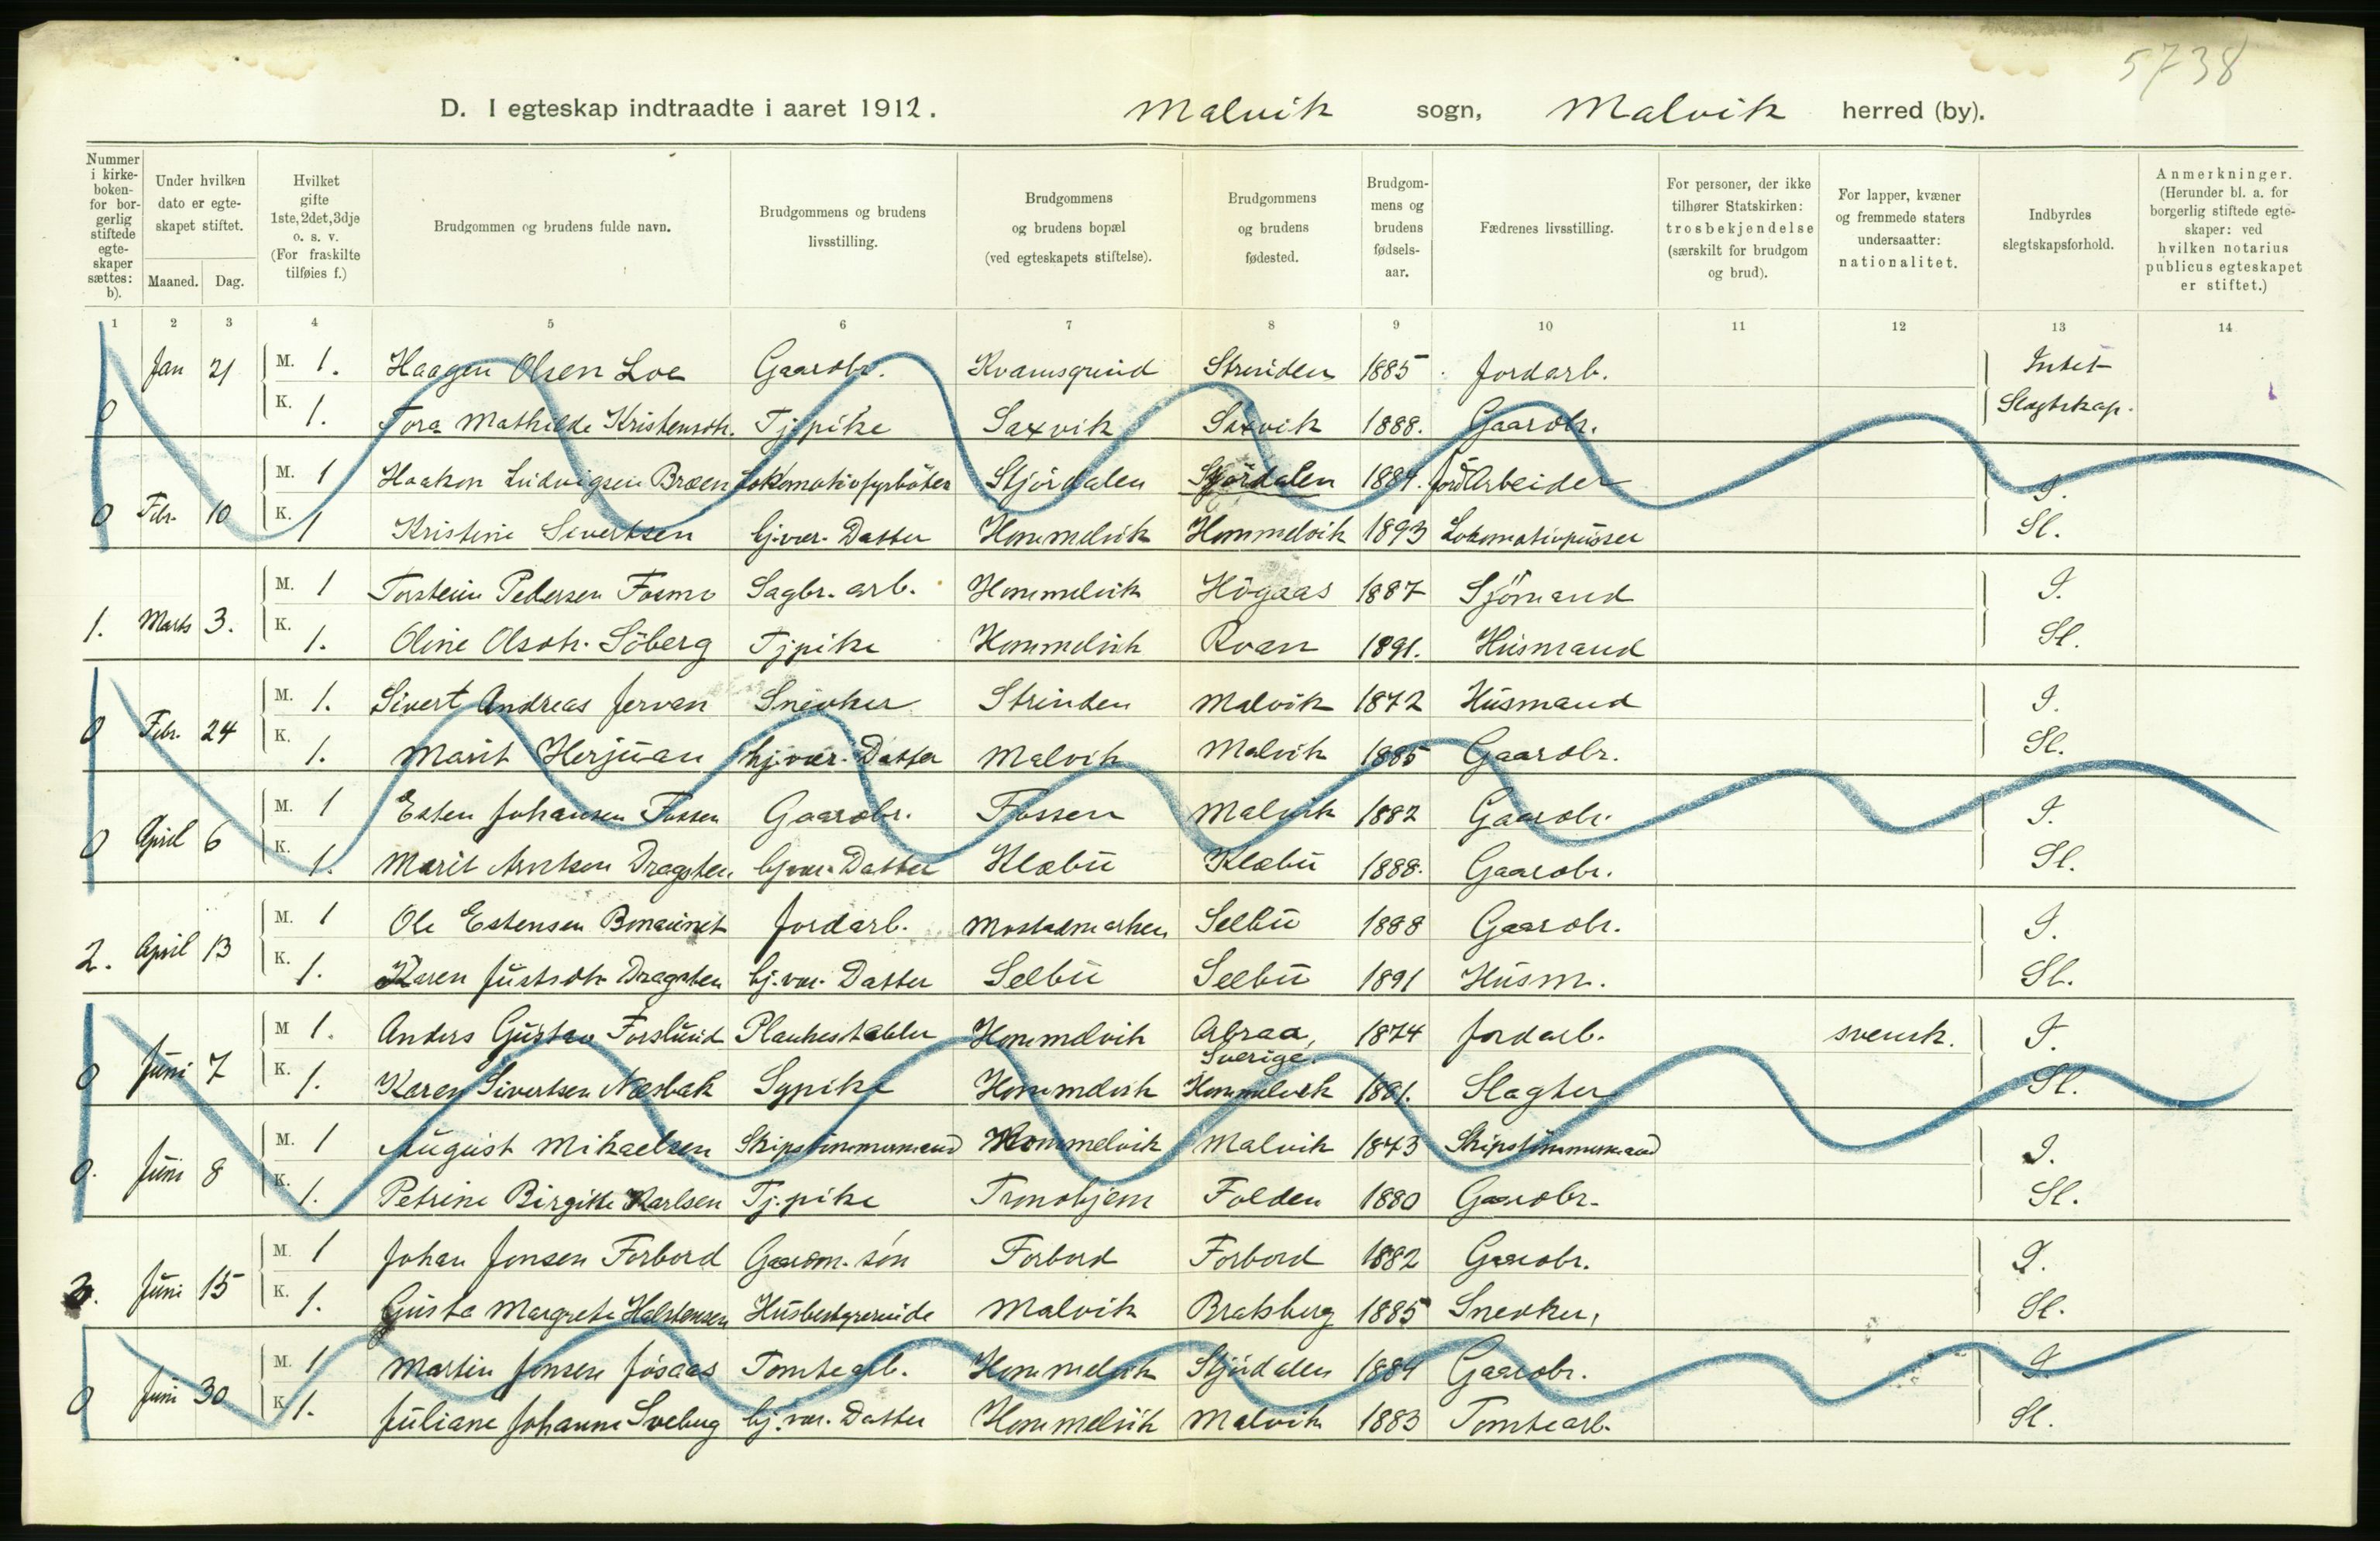 5738
D. I egteskap indtraadte i aaret 1912. Malvik sogn, Malvik herred (by).
Nummer i kirkeboken- for borgerlig stiftede egteskaper sættes: b).
Under hvilken dato er egteskapet stiftet.
Maaned. Dag.
Hvilket gifte 1ste, 2det, 3dje o. s. v. (For fraskilte tilføies f.)
Brudgommen og brudens fulde navn.
Brudgommens og brudens livsstilling.
Brudgommens og brudens bopæl (ved egteskapets stiftelse).
Brudgommens og brudens fødested.
Brudgommens og brudens fødselsaar.
Fædrenes livsstilling.
For personer, der ikke tilhører Statskirken: trosbekjendelse (særskilt for brudgom og brud).
For lapper, kvæner og fremmede staters undersaatter: nationalitet.
Indbyrdes slegtskapsforhold.
Anmerkninger. (Herunder bl. a. for borgerlig stiftede egteskaper: ved hvilken notarius publicus egteskapet er stiftet.)
1 2 3 4 5 6 7 8 9 10 11 12 13 14
Jan 21 M. 1. Haagen Olsen Loe Gaardbr. Kvamsgrind Strinden 1885 Jordarb. Intet
0 K. 1. Tora Mathilde Kristensdtr. Tjpike Saxvik Saxvik 1888. Gaardbr. Slagtskap.
M. 1 Haakon Ludvigsen Bræen Lokomotivfyrbøter Stjördalen Stjördalen 1884. Jord Arbeider I.
0 Febr. 10 K. 1 Kristine Sivertsen hj.vær. Datter Hommelvik Hommelvik 1893 Lokomotivpusser Sl.
M. 1 Torstein Pedersen Fosmo Sagbr. arb. Hommelvik Högaas 1887 Sjömand I.
1. Marts 3. K. 1. Oline Olsdtr. Söberg Tjpike Hommelvik Kvam 1891. Husmand Sl.
M. 1. Sivert Andreas Jervan Snedker Strinden Malvik 1872 Husmand I.
0 Febr. 24 K. 1. Marit Herjuan hj.vær. Datter Malvik Malvik 1885 Gaardbr. Sl.
M. 1 Esten Johansen Fossen Gaardbr. Fossen Malvik 1882 Gaardbr. I.
0 April 6 K. 1. Marit Arntsen Dragsten hj.vær. Datter Klæbu Klæbu 1888. Gaardbr. Sl.
M. 1 Ole Estensen Bonaunet Jordarb. Mostadmarken Selbu 1888 Gaardbr. I.
2. April 13 K. 1. Karen Justsdtr Dragsten hj.vær. Datter Selbu Selbu 1891 Husm. Sl.
M 1. Anders Gustav Forslund Plankestabler Hommelvik Arbraa, Sverige. 1874 Jordarb. svensk. I.
0 Juni 7 K. 1. Karen Sivertsen Næsbak Sypike Hommelvik Hommelvik 1891. Slagter Sl.
M. 1 August Mikaelsen Skipstømmermand Hommelvik Malvik 1873 Skipstømmermand I.
0. Juni 8 K. 1. Petrine Birgitte Karlsen Tj.pike Trondhjem Folden 1880 Gaardbr. Sl.
M. 1 Johan Jonsen Forbord Gaardm. søn Forbord Forbord 1882 Gaardbr. I.
3. Juni 15 K. 1. Gusta Margrete Halstensen Husbestyrerinde Malvik Bratsberg 1885 Snedker, Sl.
M. 1 Martin Jensen Jøsaas Tomtearb. Hommelvik Stjørdalen 1884 Gaardbr. I.
0 Juni 30 K. 1. Juliane Johanne Sveberg hj.vær. Datter Hommelvik Malvik 1883 Tomtearb. Sl.